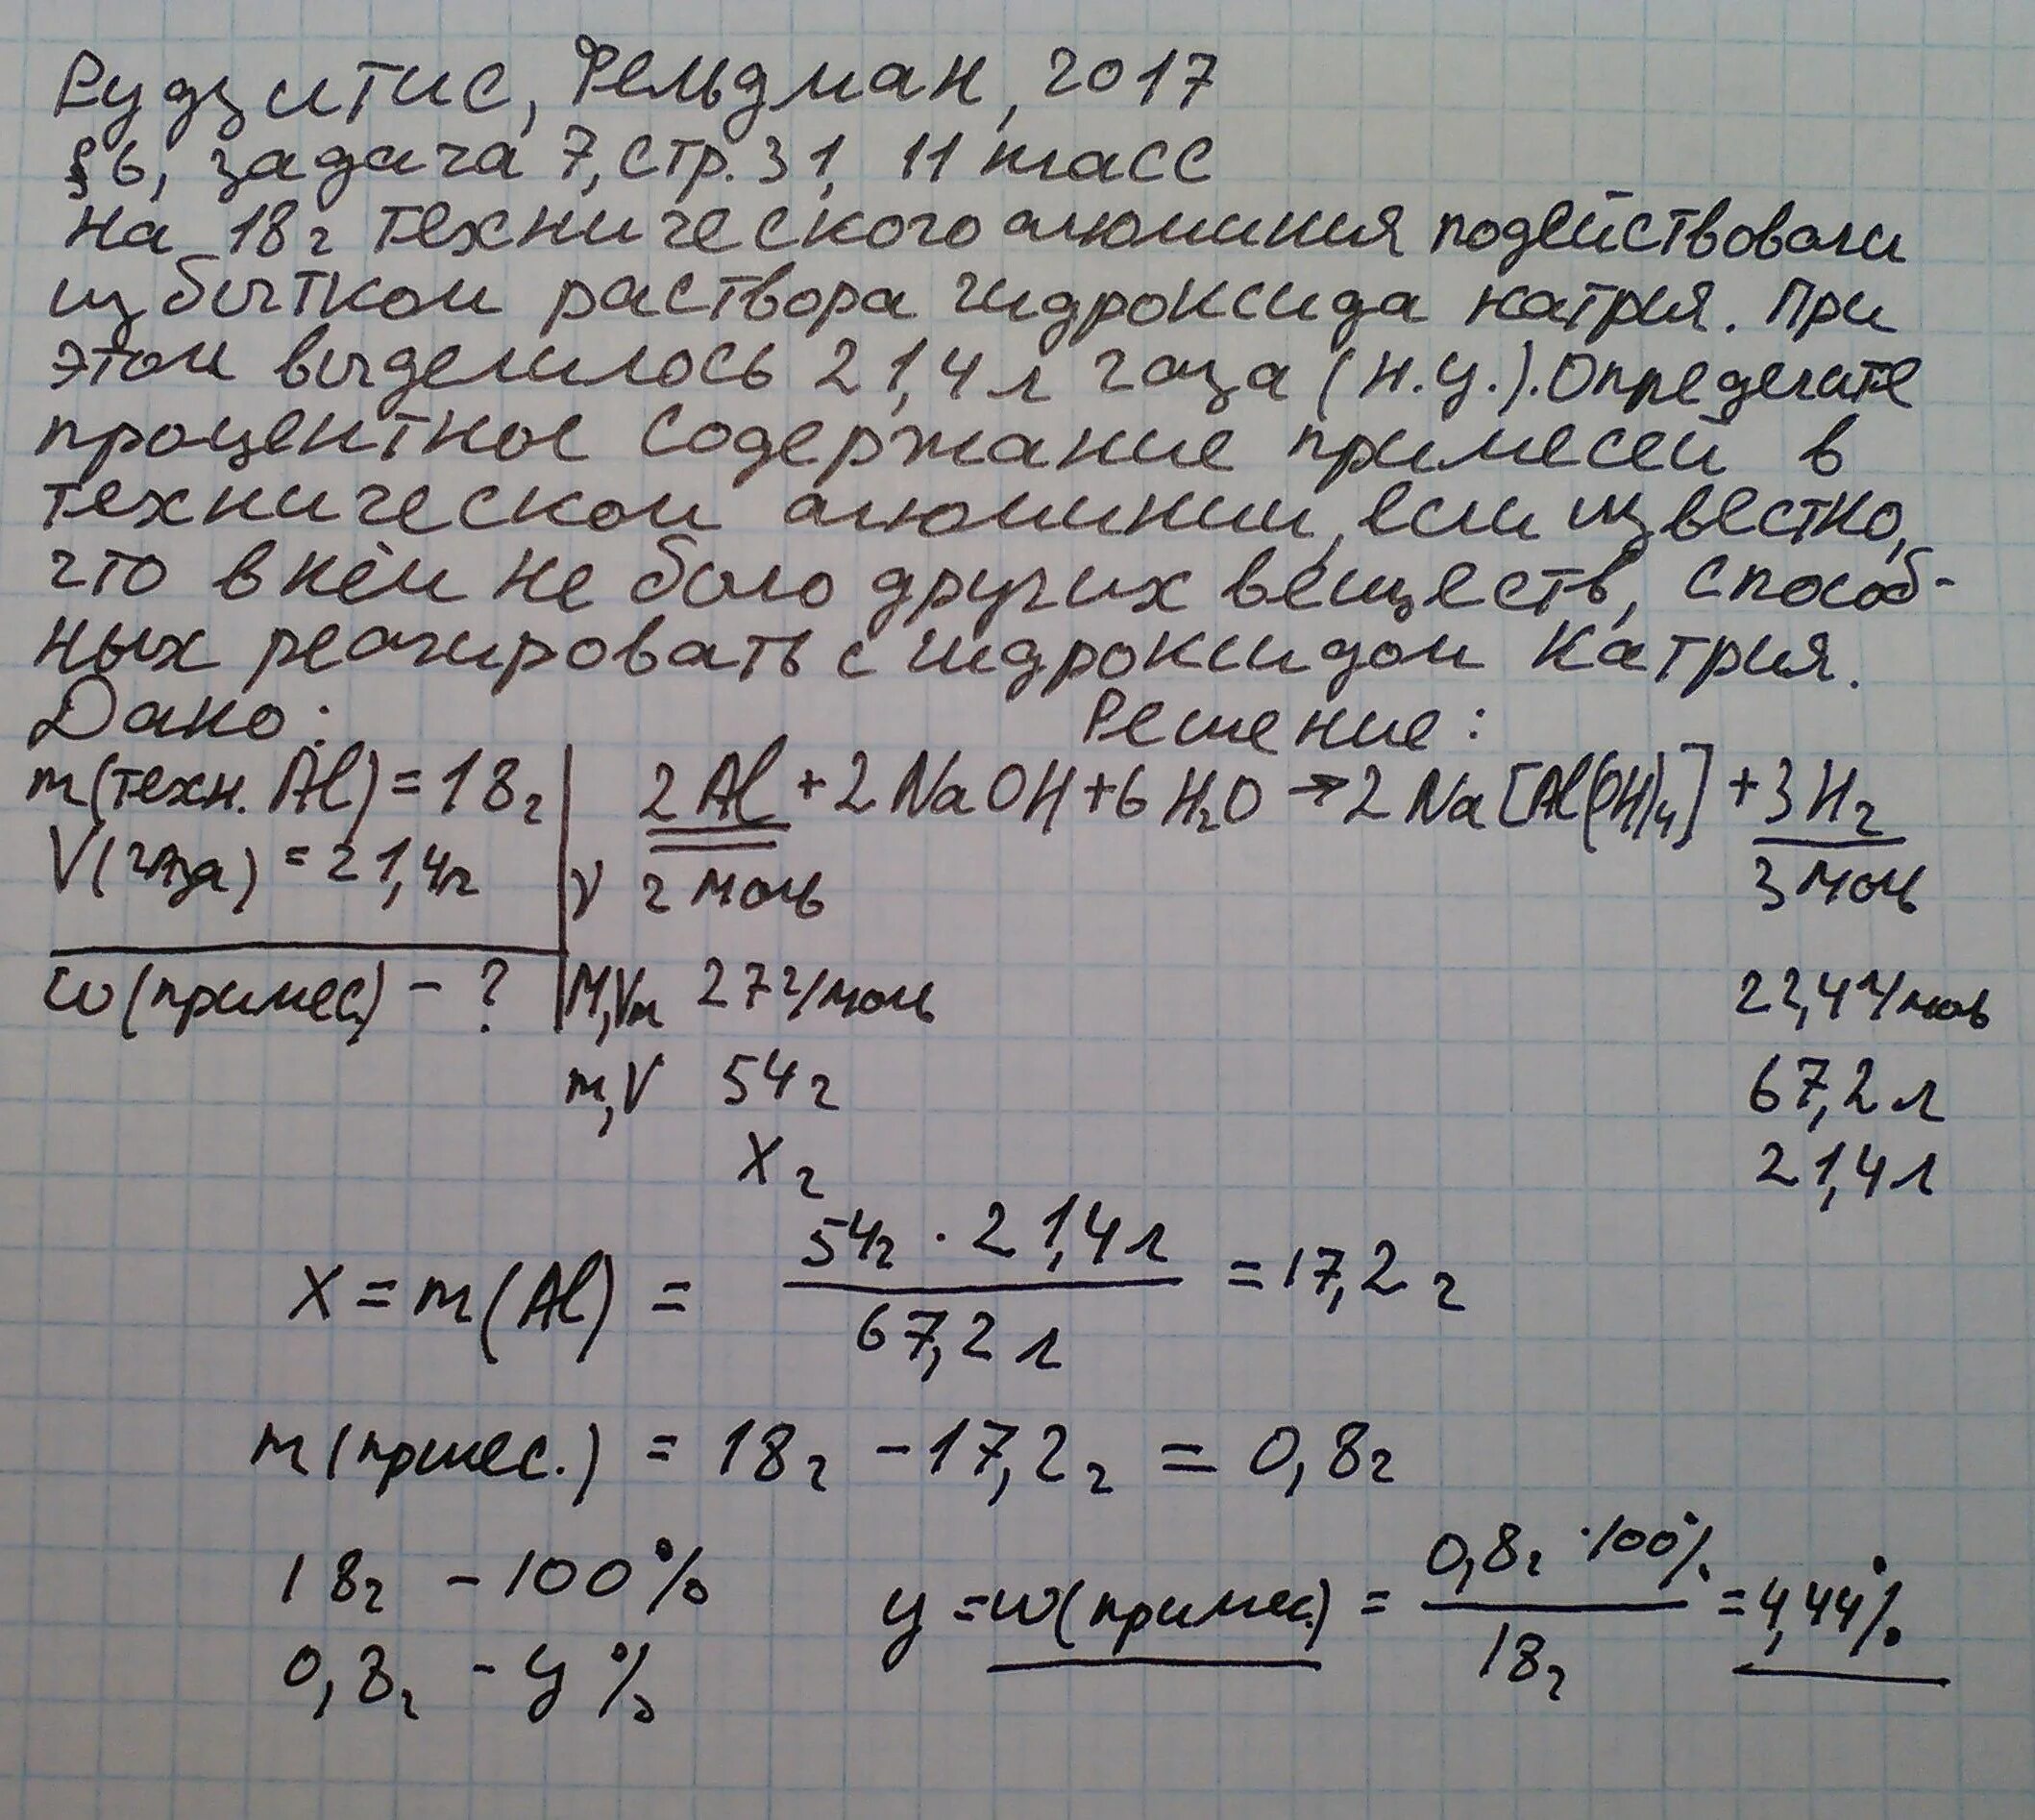 Рудзитис, Фельдман, 2017
§6, задача 7, стр. 31, 11 класс
На 18 г технического алюминия подействовали
избытком раствора гидроксида натрия. При
этом выделилось 21,4 л газа (н.у.). Определите
процентное содержание примесей в
техническом алюминии, если известно,
что в нём не было других веществ, способ-
ных реагировать с гидроксидом натрия.
Дано: Решение:
m(техн. Al) = 18 г 2Al + 2NaOH + 6H₂O → 2Na[Al(OH)₄] + 3H₂
V(газа) = 21,4 л ν 2 моль 3 моль
w(примес.) - ? M, Vm 27 г/моль 22,4 л/моль
m, V 54 г 67,2 л
X г 21,4 л
X = m(Al) = 54г · 21,4 л / 67,2 л = 17,2 г
m(примес.) = 18 г - 17,2 г = 0,8 г
18 г - 100% y = w(примес.) = 0,8 г · 100% / 18 г = 4,44%
0,8 г - y %